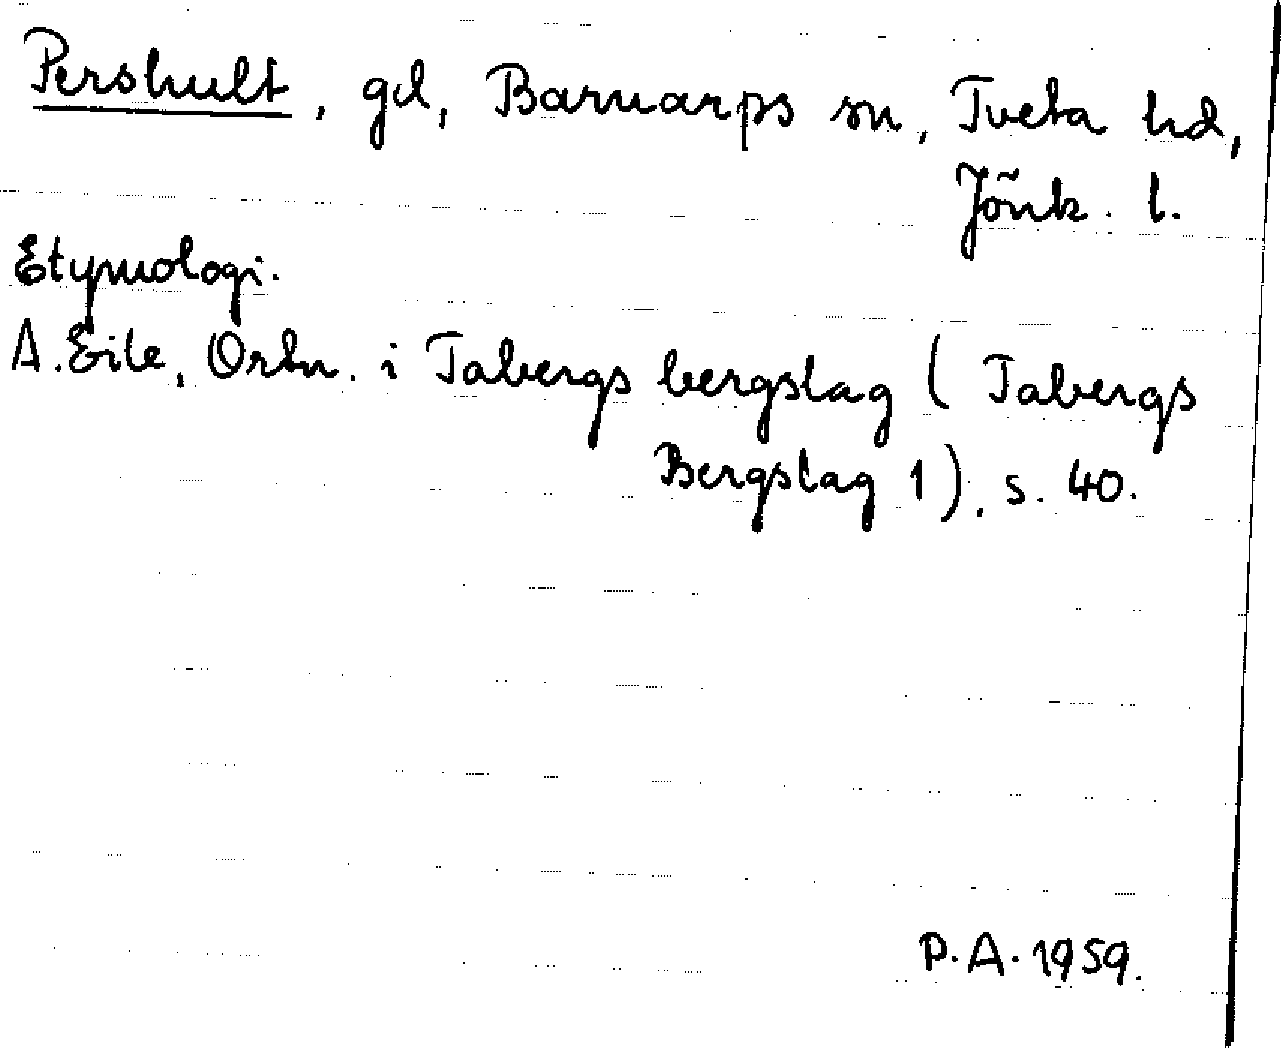 Pershult, gd, Barnarps sn, Tveta hd,
Jönk. l.
Etymologi.
A. Eile, Ortn. i Tabergs bergslag (Tabergs
Bergslag 1), s. 40.
P.A. 1959.